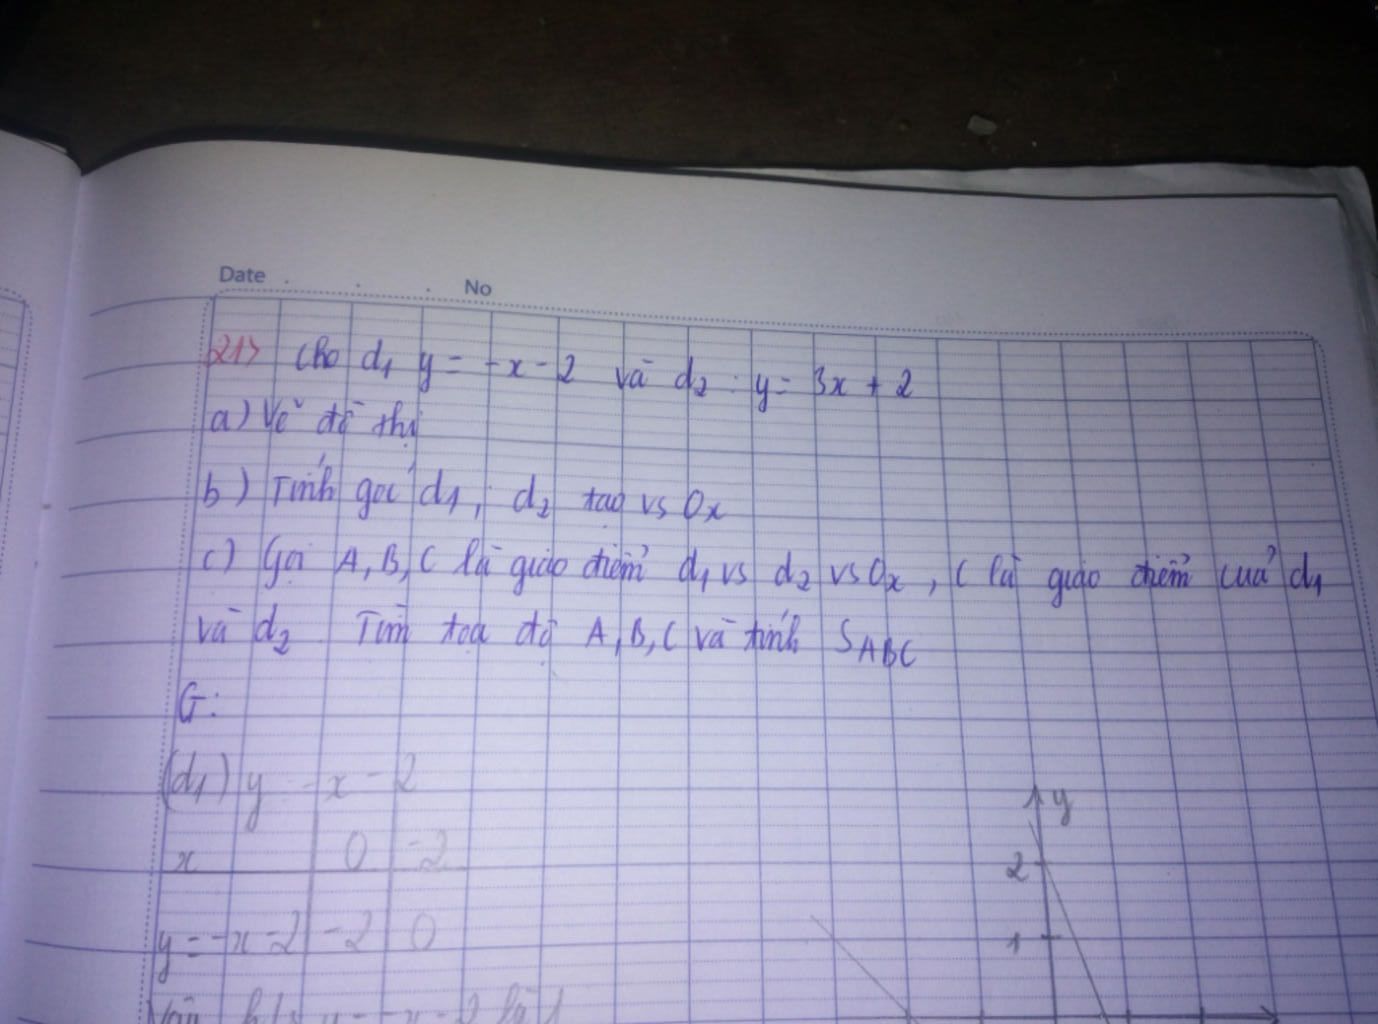 Date . . . No
21> Cho d1 y = -x - 2 và d2 : y = 3x + 2
a) Vẽ đồ thị
b) Tính góc d1, d2 tạo vs Ox
c) Gọi A, B, C là giao điểm d1 vs d2 vs Ox, C là giao điểm của d1
và d2 Tìm tọa độ A, B, C và tính SABC
G:
(d1) y = -x - 2
x 0 -2
y = -x - 2 -2 0
y
2
1